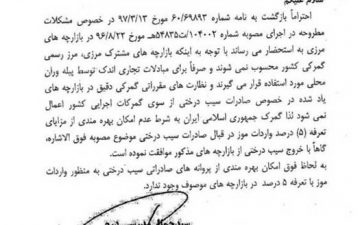 احتراماً بازگشت به نامه شماره ۶۰/۶۹۸۹۳ مورخ ۹۷/۳/۱۳ در خصوص مشکلات
مطروحه در اجرای مصوبه شماره ۱۰۴۰۰۲/ت۵۴۸۳۵هـ مورخ ۹۶/۸/۲۲ در بازارچه های
مرزی به استحضار می رساند با توجه به اینکه بازارچه های مشترک مرزی، مرز رسمی
گمرکی محسوب نمی شوند و صرفاً برای مبادلات تجاری اندک توسط پیله وران
محلی مورد استفاده قرار می گیرند و نظارت های مقرراتی گمرکی دقیق در بازارچه های
یاد شده در خصوص صادرات سیب درختی از سوی گمرکات اجرایی کشور اعمال
نمی شود لذا گمرک جمهوری اسلامی ایران به شرط عدم امکان بهره مندی از مزایای
تعرفه (۵) درصد واردات موز در قبال صادرات سیب درختی موضوع مصوبه فوق الاشاره،
گاهاً با خروج سیب درختی از بازارچه های مذکور موافقت نموده است.
به لحاظ فوق امکان بهره مندی از پروانه های صادراتی سیب درختی به منظور واردات
موز با تعرفه ۵ درصد در بازارچه های موصوف وجود ندارد.